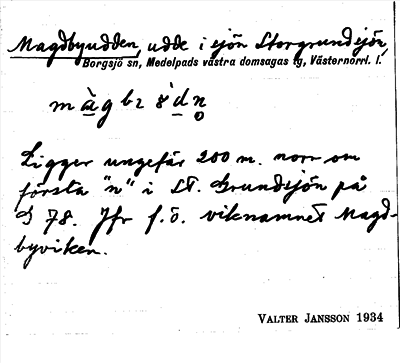 Magdbyudden, udde i sjön Storgrundsjön,
Borgsjö sn, Medelpads västra domsagas tg, Västernorrl. l.
Ligger ungefär 200 m. norr om
första "n" i St. Grundsjön på
G 78. Jfr f.ö. viknamnet Magd-
byviken.
VALTER JANSSON 1934